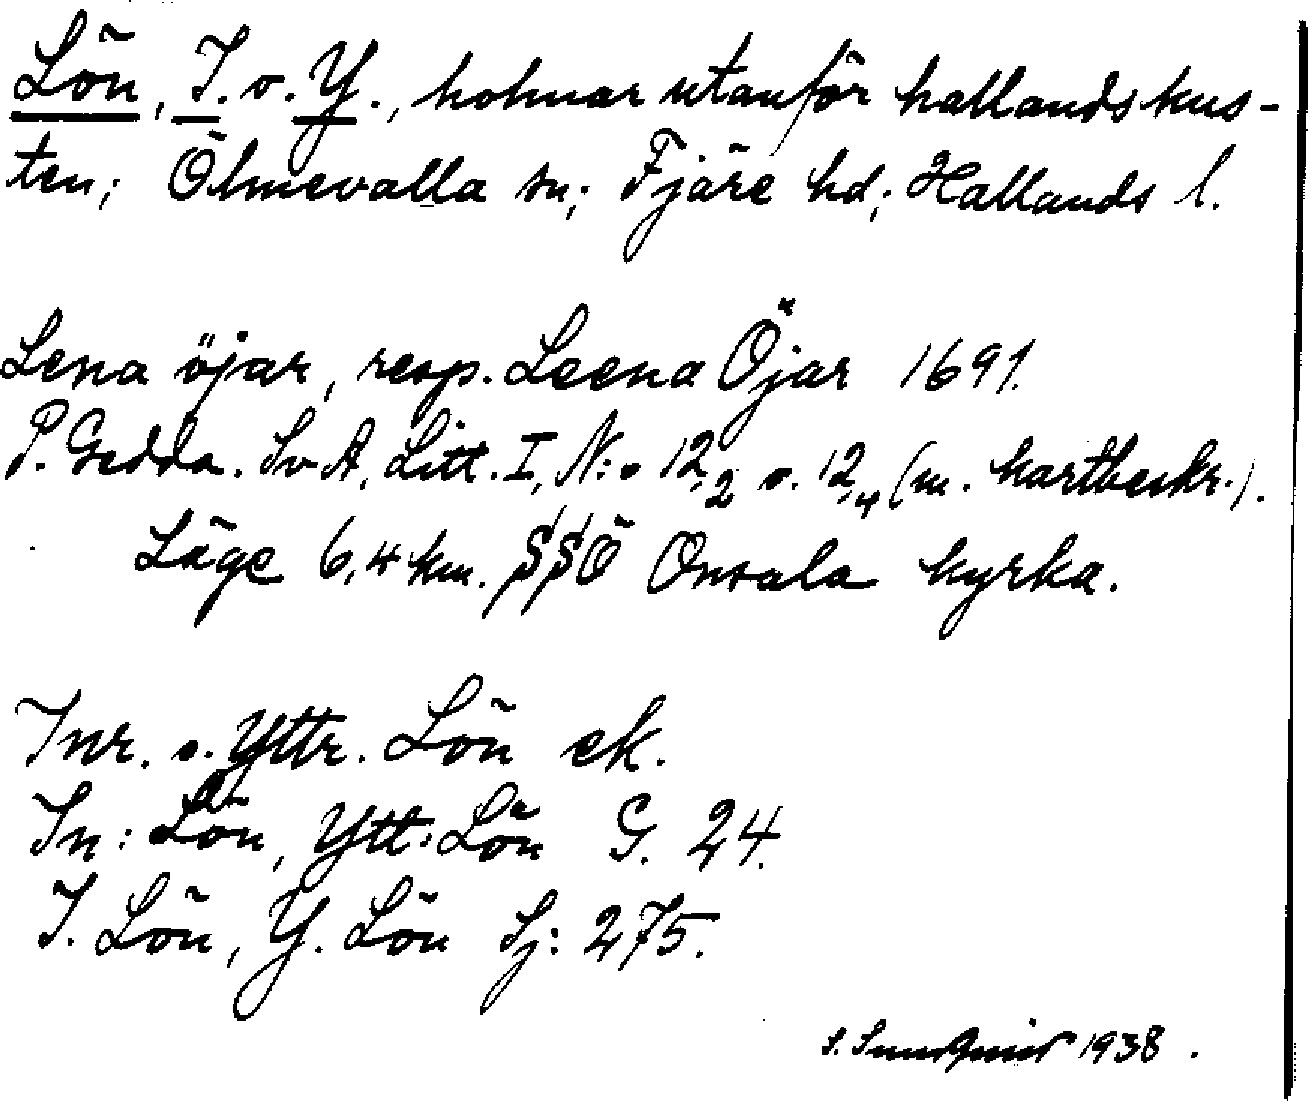 Lön, I. o. Y., holmar utanför hallandskus-
ten; Ölmevalla sn; Fjäre hd; Hallands l.
Lena öjar, resp. Leena Öjar 1691.
P. Gedda. Sv A, Litt. I, N:o 12,2 o. 12,4 (m. kartbeskr.).
Läge 6,4 km. SSÖ Onsala kyrka.
Inr. o. Yttr. Lön ek.
In: Lön, Ytt: Lön G. 24.
I. Lön, Y. Lön Sj: 275.
S. 1938.